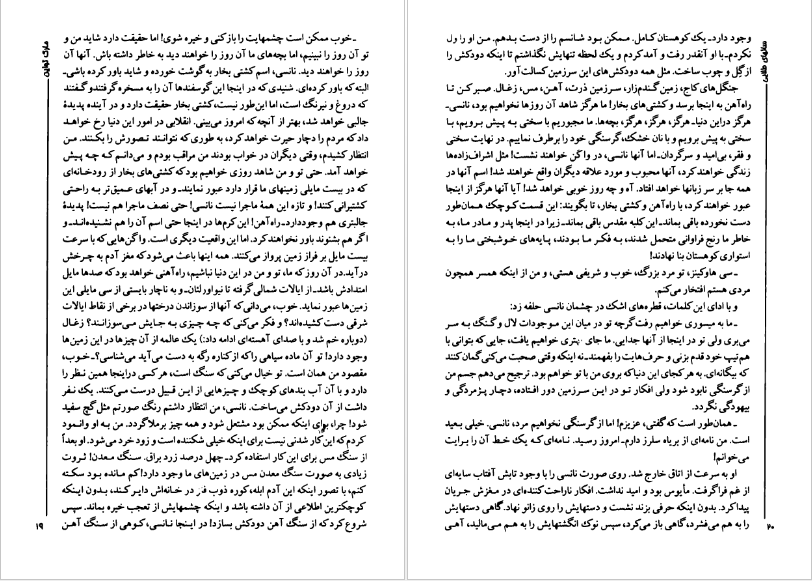 مارک تواین
ـ خوب ممکن است چشمهایت را بازکنی و خیره شوی! اما حقیقت دارد شاید من و
تو آن روز را نبینیم، اما بچه‌های ما آن روز را خواهند دید به خاطر داشته باش. آنها آن
روز را خواهند دید. نانسی، اسم کشتی بخار به گوشت خورده و شاید باور کرده باشی ـ
البته که باور کرده‌ای. شنیدی که در اینجا این گوسفندها آن را به مسخره گرفتند و گفتند
که دروغ و نیرنگ است، اما این‌طور نیست، کشتی بخار حقیقت دارد و در آینده پدیدهٔ
جالبی خواهد شد، بهتر از آنچه که امروز می‌بینی. انقلابی در امور این دنیا رخ خواهد
داد که مردم را دچار حیرت خواهد کرد، به طوری که نتوانند تصورش را بکنند. من
انتظار کشیدم، وقتی دیگران در خواب بودند من مراقب بودم و می‌دانم که چه پیش
خواهد آمد. حتی تو و من شاهد روزی خواهیم بود که کشتی‌های بخار از رودخانه‌ای
که در بیست مایلی زمینهای ما قرار دارد عبور نمایند ـ و در آبهای عمیق‌تر به راحتی
کشتیرانی کنند! و تازه این همهٔ ماجرا نیست نانسی! حتی نصف ماجرا هم نیست! پدیدهٔ
جالبتری هم وجود دارد ـ راه‌آهن! این کرم‌ها در اینجا حتی اسم آن را هم نشنیده‌اند ـ و
اگر هم بشنوند باور نخواهند کرد. اما این واقعیت دیگری است. واگن‌هایی که با سرعت
بیست مایل بر فراز زمین پرواز می‌کنند. همه اینها باعث می‌شود که مغز آدم به چرخش
درآید. در آن روز که ما، تو و من در این دنیا نباشیم، راه‌آهنی خواهد بود که صدها مایل
امتدادش باشد ـ از ایالات شمالی گرفته تا نیواورلئان ـ و به ناچار بایستی از سی مایلی این
زمین‌ها عبور نماید. خوب، می‌دانی که آنها از سوزاندن درختها در برخی از نقاط ایالات
شرقی دست کشیده‌اند؟ و فکر می‌کنی که چه چیزی به جایش می‌سوزانند؟ زغال
(دوباره خم شد و با صدای آهسته‌ای ادامه داد:) یک عالمه از آن چیزها در این زمین‌ها
وجود دارد! تو آن ماده سیاهی را که از کناره رگه به دست می‌آید می‌شناسی؟ ـ خوب،
مقصود من همان است. تو خیال می‌کنی که سنگ است، هر کسی در اینجا همین نظر را
دارد و با آن آب بندهای کوچک و چیزهایی از این قبیل درست می‌کنند. یک نفر
داشت از آن دودکش می‌ساخت. نانسی، من انتظار داشتم رنگ صورتم مثل گچ سفید
شود! چرا، برای اینکه ممکن بود مشتعل شود و همه چیز برملاگردد. من به او وانمود
کردم که این کار شدنی نیست برای اینکه خیلی شکننده است و زود خرد می‌شود. او بعداً
از سنگ مس برای این کار استفاده کرد ـ چهل درصد زرد براق. سنگ معدن! ثروت
زیادی به صورت سنگ معدن مس در زمین‌های ما وجود دارد! کم مانده بود سکته
کنم، با تصور اینکه این آدم ابله، کوره ذوب فلز در خانه‌اش دایر کند، بدون اینکه
کوچکترین اطلاعی از آن داشته باشد و اینکه چشمهایش از تعجب خیره بماند. سپس
شروع کرد که از سنگ آهن دودکش بسازد! در اینجا نانسی، کوهی از سنگ آهن
۱۹
سالهای طلایی
وجود دارد ـ یک کوهستان کامل. ممکن بود شانسم را از دست بدهم. من او را ول
نکردم ـ با او آنقدر رفت و آمد کردم و یک لحظه تنهایش نگذاشتم تا اینکه دودکش را
از گل و چوب ساخت. مثل همه دودکش‌های این سرزمین کسالت‌آور.
جنگل‌های کاج، زمین گندم‌زار، سرزمین ذرت، آهن، مس، زغال. صبر کن تا
راه‌آهن به اینجا برسد و کشتی‌های بخار! ما هرگز شاهد آن روزها نخواهیم بود، نانسی ـ
هرگز در این دنیا ـ هرگز، هرگز، هرگز، بچه‌ها. ما مجبوریم با سختی به پیش برویم، با
سختی به پیش برویم و با نان خشک، گرسنگی خود را برطرف نماییم. در نهایت سختی
و فقر، بی‌امید و سرگردان ـ اما آنها نانسی، در واگن خواهند نشست! مثل اشراف‌زاده‌ها
زندگی خواهند کرد، آنها محبوب و مورد علاقه دیگران واقع خواهند شد! اسم آنها در
همه جا بر سر زبانها خواهد افتاد. آه و چه روز خوبی خواهد شد! آیا آنها هرگز از اینجا
عبور خواهند کرد، با راه‌آهن و کشتی بخار، تا بگویند: این قسمت کوچک همان‌طور
دست نخورده باقی بماند ـ این کلبه مقدس باقی بماند ـ زیرا در اینجا پدر و مادر ما، به
خاطر ما رنج فراوانی متحمل شدند، به فکر ما بودند، پایه‌های خوشبختی ما را به
استواری کوهستان بنا نهادند!
ـ سی هاوکینز، تو مرد بزرگ، خوب و شریفی هستی، و من از اینکه همسر همچون
مردی هستم افتخار می‌کنم.
و با ادای این کلمات، قطره‌های اشک در چشمان نانسی حلقه زد:
ـ ما به میسوری خواهیم رفت گرچه تو در میان این موجودات لال و گنگ به سر
می‌بری ولی تو در اینجا از آنها جدایی. ما جای بهتری خواهیم یافت، جایی که بتوانی با
هم‌تیپ خود قدم بزنی و حرف‌هایت را بفهمند ـ نه اینکه وقتی صحبت می‌کنی گمان کنند
که بیگانه‌ای. به هر کجای این دنیا که بروی من با تو خواهم بود. ترجیح می‌دهم جسم من
از گرسنگی نابود شود ولی افکار تو در این سرزمین دور افتاده، دچار پژمردگی و
بیهودگی نگردد.
ـ همان‌طور است که گفتی، عزیزم! اما از گرسنگی نخواهیم مرد، نانسی. خیلی بعید
است. من نامه‌ای از بریاه سلرز دارم ـ امروز رسید. نامه‌ای که یک خط آن را برایت
می‌خوانم!
او به سرعت از اتاق خارج شد. روی صورت نانسی را با وجود تابش آفتاب سایه‌ای
از غم فراگرفت. مأیوس بود و امید نداشت. افکار ناراحت کننده‌ای در مغزش جریان
پیدا کرد. بدون اینکه حرفی بزند نشست و دستهایش را روی زانو نهاد. گاهی دستهایش
را به هم می‌فشرد، گاهی باز می‌کرد، سپس نوک انگشتهایش را به هم می‌مالید، آهی
۲۰